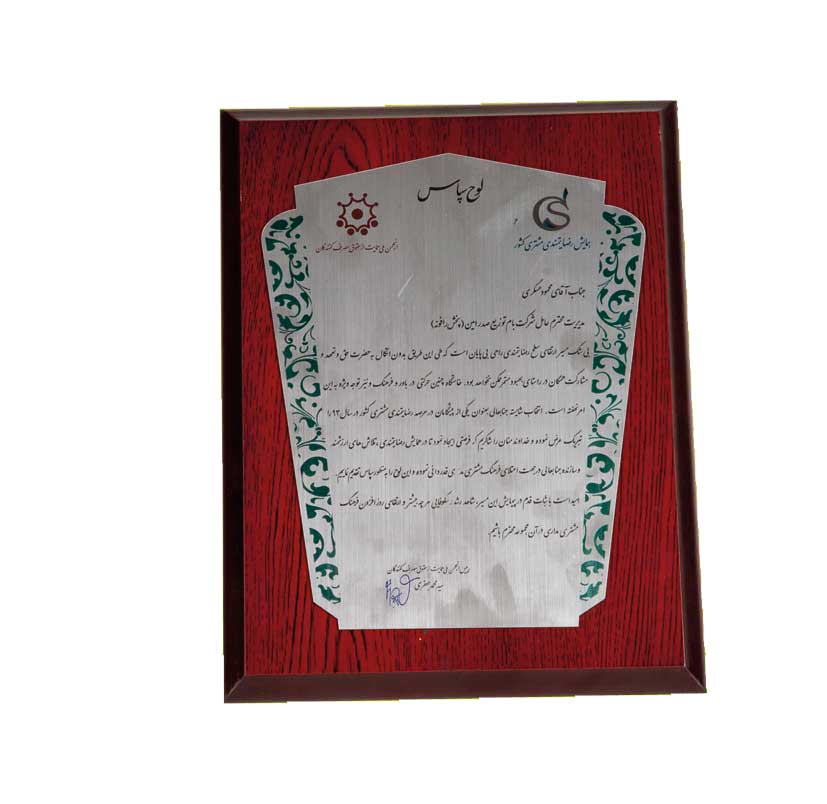 لوح سپاس
همایش رضایتمندی مشتری کشور
انجمن ملی حمایت از حقوق مصرف کنندگان
جناب آقای محمود عسکری
مدیریت محترم عامل شرکت بام توزیع صدر امین (پخش رافونه)
بی شک مسیر ارتقای سطح رضایتمندی راهی بی پایان است که طی این طریق بدون اتکال به حضرت حق و تعهد و
مشارکت همگان در راستای بهبود مستمر ممکن نخواهد بود. خاستگاه چنین حرکتی در باور و فرهنگ و نیز توجه ویژه به این
امر نهفته است. انتخاب شایسته جنابعالی بعنوان یکی از پیشگامان در عرصه رضایتمندی مشتری کشور در سال ۹۳ را
تبریک عرض نموده و خداوند منان را شاکریم که فرصتی ایجاد نمود تا در همایش رضایتمندی، تلاش های ارزشمند
و سازنده جنابعالی در جهت اعتلای فرهنگ مشتری مداری قدردانی نموده و این لوح را به منظور سپاس تقدیم نماییم.
امید است با ثبات قدم در پیمایش این مسیر، شاهد رشد، شکوفایی هر چه بیشتر و ارتقای روز افزون فرهنگ
مشتری مداری در آن مجموعه محترم باشیم.
رییس انجمن ملی حمایت از حقوق مصرف کنندگان
سید محمد جعفری